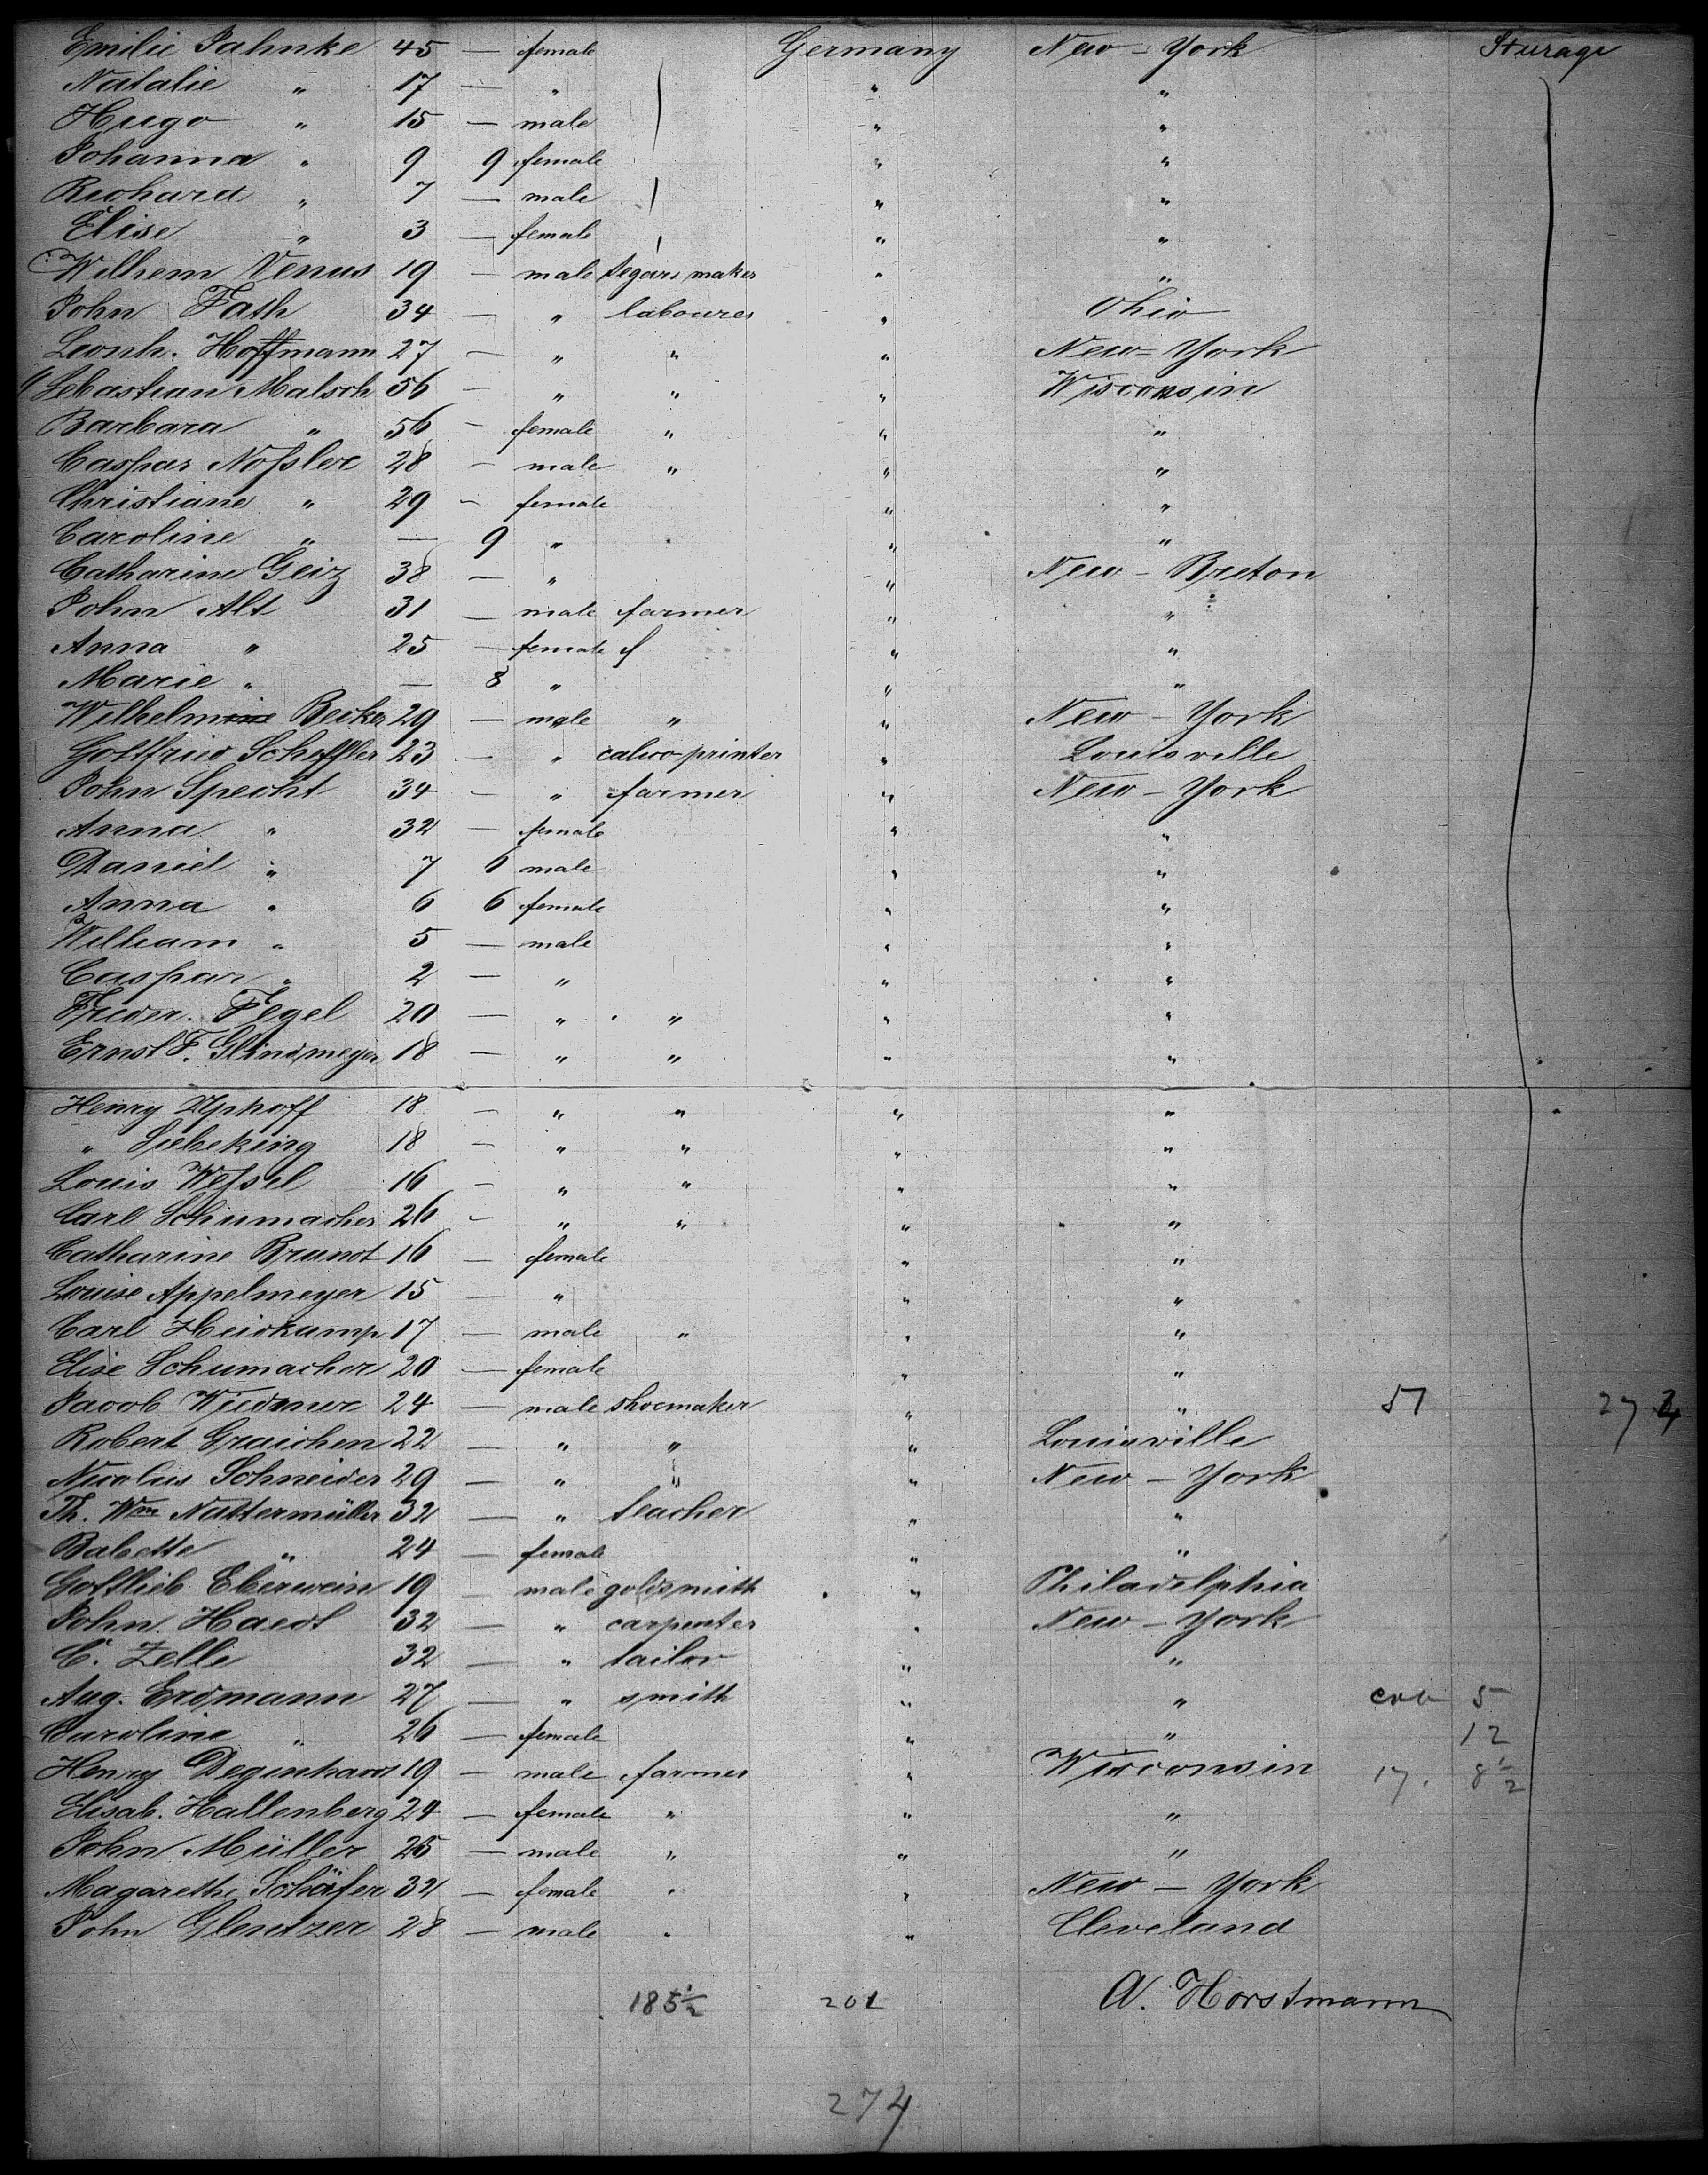 Emilie Jahnke 45 — female Germany New-York Sturage
Natalie " 17 — " " "
Hugo " 15 — male " "
Johanna " 9 9 female " "
Richard " 7 — male " "
Elise " 3 — female " "
Wilhem Venus 19 — male segars maker " "
John Fath 34 — " labourer " Ohio
Leonh. Hoffmann 27 — " " " New-York
Sebastian Malsch 56 — " " " Wisconsin
Barbara " 56 — female " " "
Caspar Noßler 28 — male " " "
Christiane " 29 — female " "
Caroline " — 9 " " "
Catharine Geiz 38 — " " New-Breton
John Alt 31 — male farmer " "
Anna " 25 — female " "
Marie " — 8 " " "
Wilhelm Becker 29 — male " " New-York
Gottfried Scheffler 23 — " calico-printer " Louisville
John Specht 34 — " farmer " New-York
Anna " 32 — female " "
Daniel " 7 6 male " "
Anna " 6 6 female " "
William " 5 — male " "
Caspar " 2 — " " "
Frieder. Fegel 20 — " " " "
Ernst F. Glindmeyer 18 — " " " "
Henry Uphoff 18 — " " " "
" Siebeking 18 — " " " "
Louis Weßel 16 — " " " "
Carl Schumacher 26 — " " " "
Catharine Brundt 16 — female " "
Louise Appelmeyer 15 — " " "
Carl Heidkamp 17 — male " " "
Elise Schumacher 20 — female " "
Jacob Wiedmer 24 — male shoemaker " " 51 274
Robert Graichen 22 — " " " Louisville
Nicolaus Schneider 29 — " " " New-York
Th. Wm Nattermüller 32 — " teacher " "
Babette " 24 — female " "
Gottlieb Eberwein 19 — male goldsmith " Philadelphia
John Haedt 32 — " carpenter " New-York
C. Zelle 32 — " tailor " "
Aug. Erdmann 27 — " smith " " 5
Caroline " 26 — female " " 12
Henry Degenhard 19 — male farmer " Wisconsin 17. 8½
Elisab. Hallenberg 24 — female " " "
John Müller 25 — male " " "
Magarethe Schäfer 32 — female " " New-York
John Glentzer 28 — male " " Cleveland
185½ 201 A. Horstmann
274